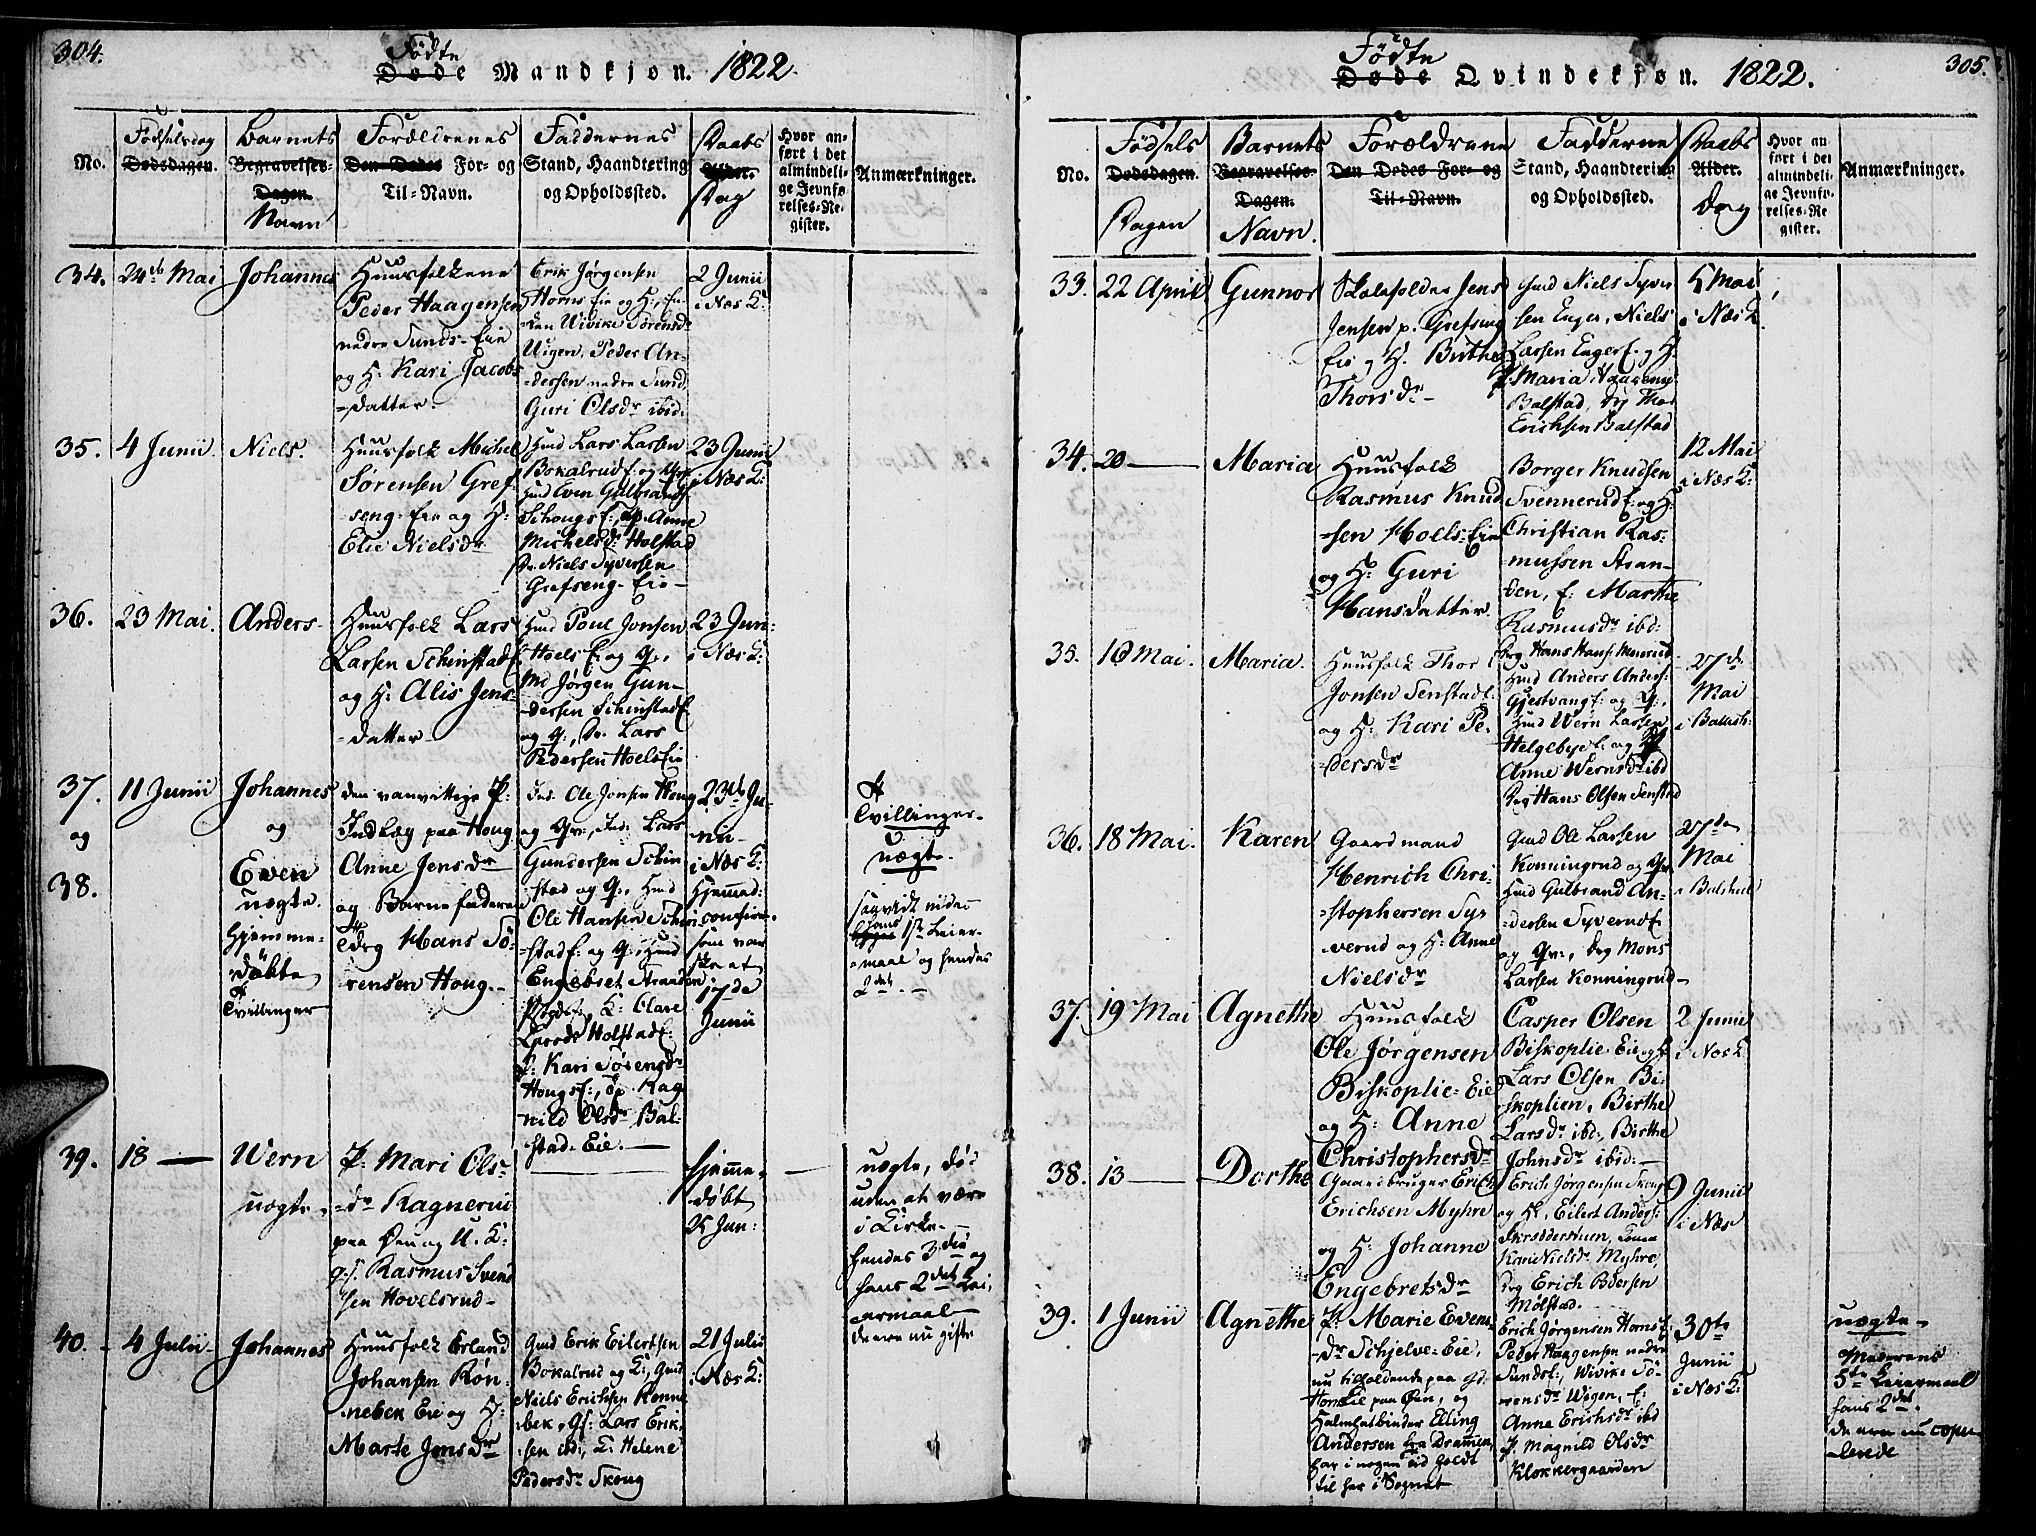 304.
Fødte
Døde Mandkjøn. 1822.
No.
Fødselsdag
Dødsdagen.
Barnets
Begravelses-
Dagen.
Navn
Forældrenes
Den Dødes For- og
Til-Navn.
Faddernes
Stand, Haandtering
og Opholdssted.
Daabs
Alder.
Dag
Hvor an-
ført i det
almindeli-
ge Jevnfø-
relses-Re-
gister.
Anmærkninger.
34.
24de Mai
Johannes
Huusfolkene
Peder Haagensen
nedre Sunds-Eie
og H: Kari Jacobs
-datter.
Erik Jørgensen
Horns Eie og H:
Wivike Sørensdr
Wigen, Peder An-
-dersen nedre Sund,
Guri Olsdr ibid:
2 Junii
i Næs K:
35.
4 Junii.
Niels.
Huusfolk Michel
Sørensen Gref
-seng-Eie og H:
Elie Nielsdr
Huusmd Lars Larsen
Bokalrud E: og Qv:
Huusmd Even Gulbrands
Schougs E:, Anne
Michelsdr Holstad
Dr. Niels Syversen
Grefseng-Eie-
23 Junii
i Næs K:
36.
23 Mai.
Anders-
Huusfolk Lars
Larsen Schinstad E
og H: Alis Jens-
-datter-
Huusmd Poul Jonsen
Hoels E: og Q:,
Md Jørgen Gun-
-dersen Schinstad E
og Q:, Dr. Lars
Pedersen Hoels Eie
23 Juni:
i Næs K:
37.
og
38.
11 Junii
Johannes
og
Even
uægte.
Hjemme-
døbte
Tvillinger
den vanvittige P:
Indlæg paa Houg
Anne Jensdr
og Barnefaderen
Hans Sø-
rensen Houg.-
Ole Jonsen Houg
og Qv:, Lars
Gundersen Schin
-stad og Q:, Huusmd
Ole Hansen Schin
-stad E: og Q:, Huusmd
Engebret Stranden
Clare
Holstad E:
P: Kari Sørensdr
Hougs E:, Rag
nild Olsdr Bal-
stad-Eie.-
23de Ju-
nii-
i Næs K:
Hjemmed:
confirm.
som var
skeet
17de
Junii
Tvillinger-
uægte.
saavidt vides
hans 1ste Leier-
-maal og hendes
2det.-
39.
18 -
Wern
uægte.
P: Mari Ols-
-dr Ragnerud
paa Øen og U. K:
g:s. Rasmus Svend
sen Hovelsrud-
Hjemme-
-døbt
25 Jun:
uægte, død
uden at være
i Kirke.-
hendes 3die og
hans 2det Lei-
-ermaal
de ere nu gifte
40.
4 Julii
Johannes
Huusfolk Erland
Johansen Røn-
nebek Eie og H:
Marte Jensdr
Gmd Erik Eilertsen
Bokalrud og K:, Gmd
Niels Erichsen Rønne
-bek, Gs: Lars Erik-
-sen ibd:, K: Helene
Pedersdr Skoug
21 Julii
i Næs K:
305.
Fødte
Døde Qvindekjøn. 1822.
No.
Fødsels
Dødsdagen.
Dagen
Barnets
Begravelses-
Dagen.
Navn.
Forældrene
Den Dødes For- og
Til-Navn.
Fadderne
Stand, Haandtering
og Opholdssted.
Daabs
Alder.
Dag
Hvor an
ført i det
almindeli-
ge Jevnfø-
relses-Re
gister.
Anmærkninger.
33.
22 April
Gunnor
Skoleholder Jens
Jensen p. Grefseng
Eie og H. Birthe
Thorsdr-
Gmd Niels Syver
sen Enger, Niels
Larsen Enger E. og H:
P: Maria
Balstad, Thor
Erichsen Balstad
5 Mai
i Næs K.
34.
20 -
Maria
Huusfolk
Rasmus Knud
-sen Hoels-Eie
og H: Guri
Hansdatter.
Borger Knudsen
Svennerud E: og H:
Christian Ras-
mussen Stran-
den, E: Marthe
Rasmusdr ibd:
12 Mai
i Næs K:
35.
16 Mai.
Maria.
Huusfolk Thor
Jonsen Senstad E:
og H: Kari Pe-
-dersdr
Drg Hans Hans:
Huusmd Anders Anders:
Gjestvang E: og Q:,
Huusmd Wern Larsen
Helgebye E: og P
Anne Wernsdr ibd
Drg Hans Olsen Senstad
27de
Mai
i Balish:
36.
18 Mai.
Karen
Gaardmand
Henrich Chri-
-stophersen Sy-
verud og H: Anne
Nielsdr
Gmd Ole Larsen
Konningrud og Qv:
Huusmd Gulbrand An-
-dersen Syverud E
og Qv:, Drg Mons
Larsen Konningrud-
27de
Mai
i Balishol
37.
19 Mai
Agnethe
Huusfolk
Ole Jørgensen
Biskoplie-Eie
og H: Anne
Christophersdr
Casper Olsen
Biskoplie Eie og H
Lars Olsen Bi-
-skoplien, Birthe
Larsdr ibd:, Birthe
Johnsdr ibid:-
2 Junii
i Næs K:
38.
13 -
Dorthe
Gaardbruger Erich
Erichsen Myhre
og H: Johanne
Engebretsdr
Erich Jørgensen Skoug
og H:, Eilert Anders:
Skrædderstuen,
Karie Nielsdr Myhre,
Drg Erich Pedersen
Mølstad.
9 Junii
i Næs
39.
1 Junii
Agnethe
P: Marie Evens-
-dr Schjelve-Eie,
nu tilholdende paa
Horns Eie paa Øen, og
Halmhatbinder Elling
Andersen fra Drammen,
har i nogen Tid holdt
til her i Sognet
Erich Jørgensen Horns E:
Peder Haagensen nedre
Sunds E:, Wivike Sø-
rensdr Wigen, E:
Anne Erichsdr ibd
P. Magnild Olsdr
Klokkergaarden
30te
Junii
i Næs K:
uægte-
Moderens
5te Leiermaal
hans 2det.
de ere nu copu
-lerede